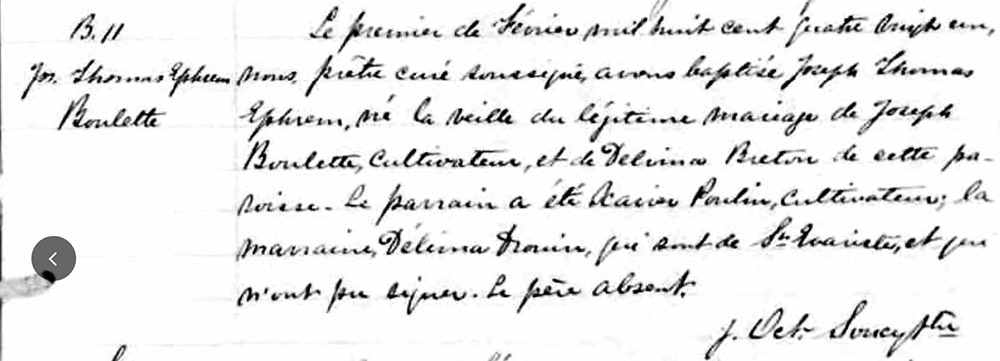 B. 11
Jos. Thomas Ephrem
Boulette
Le premier de Février mil huit cent quatre vingt un,
nous, prêtre curé soussigné, avons baptisé Joseph Thomas
Ephrem, né la veille du légitime mariage de Joseph
Boulette, Cultivateur, et de Delvina Breton de cette pa-
roisse. Le parrain a été Xavier Poulin, Cultivateur; la
marraine, Délima Drouin, qui sont de St. Evariste, et qui
n'ont pu signer. Le père absent.
J. Oct. Soucy Ptre